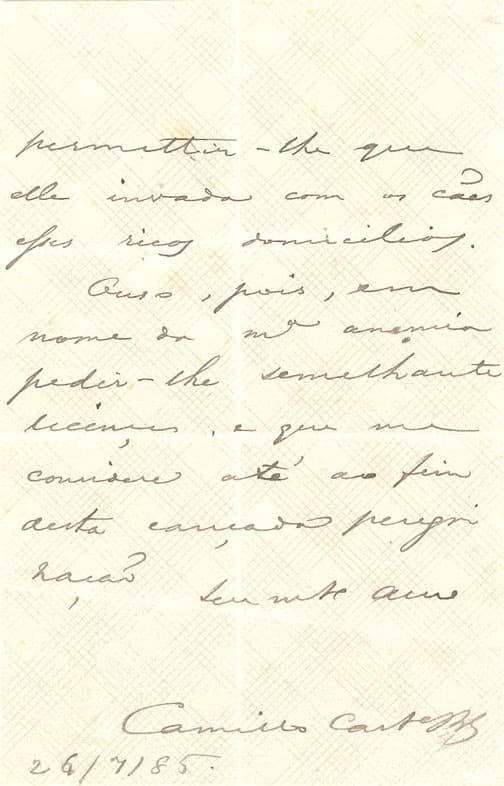 permettir-lhe que
elle invada com os cães
esses ricos domicilios.
Ouso, pois, em
nome da mª anemia
pedir-lhe semelhante
licença, e que me
considere até ao fim
desta cançada peregri
nação
Seu mto amo
Camillo Castello Bco
26/7/85.